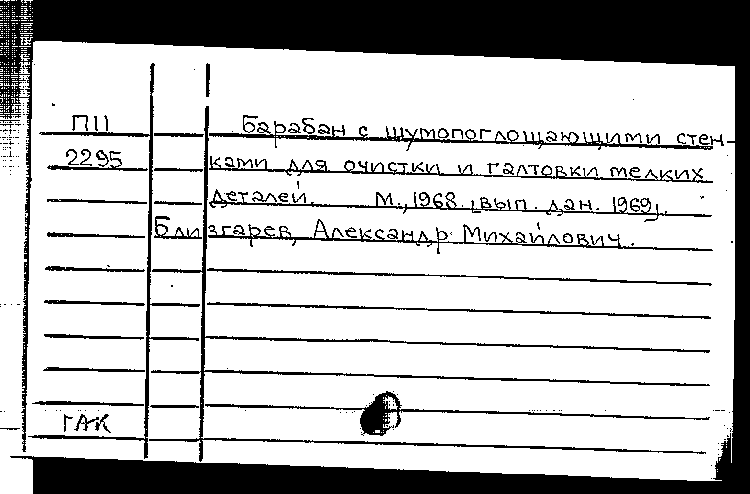 П11 Барабан с шумопоглощающими стен-
2295 ками для очистки и галтовки мелких
деталей. М., 1968. [вып. дан. 1969].
Близгарев, Александр Михайлович.
ГАК